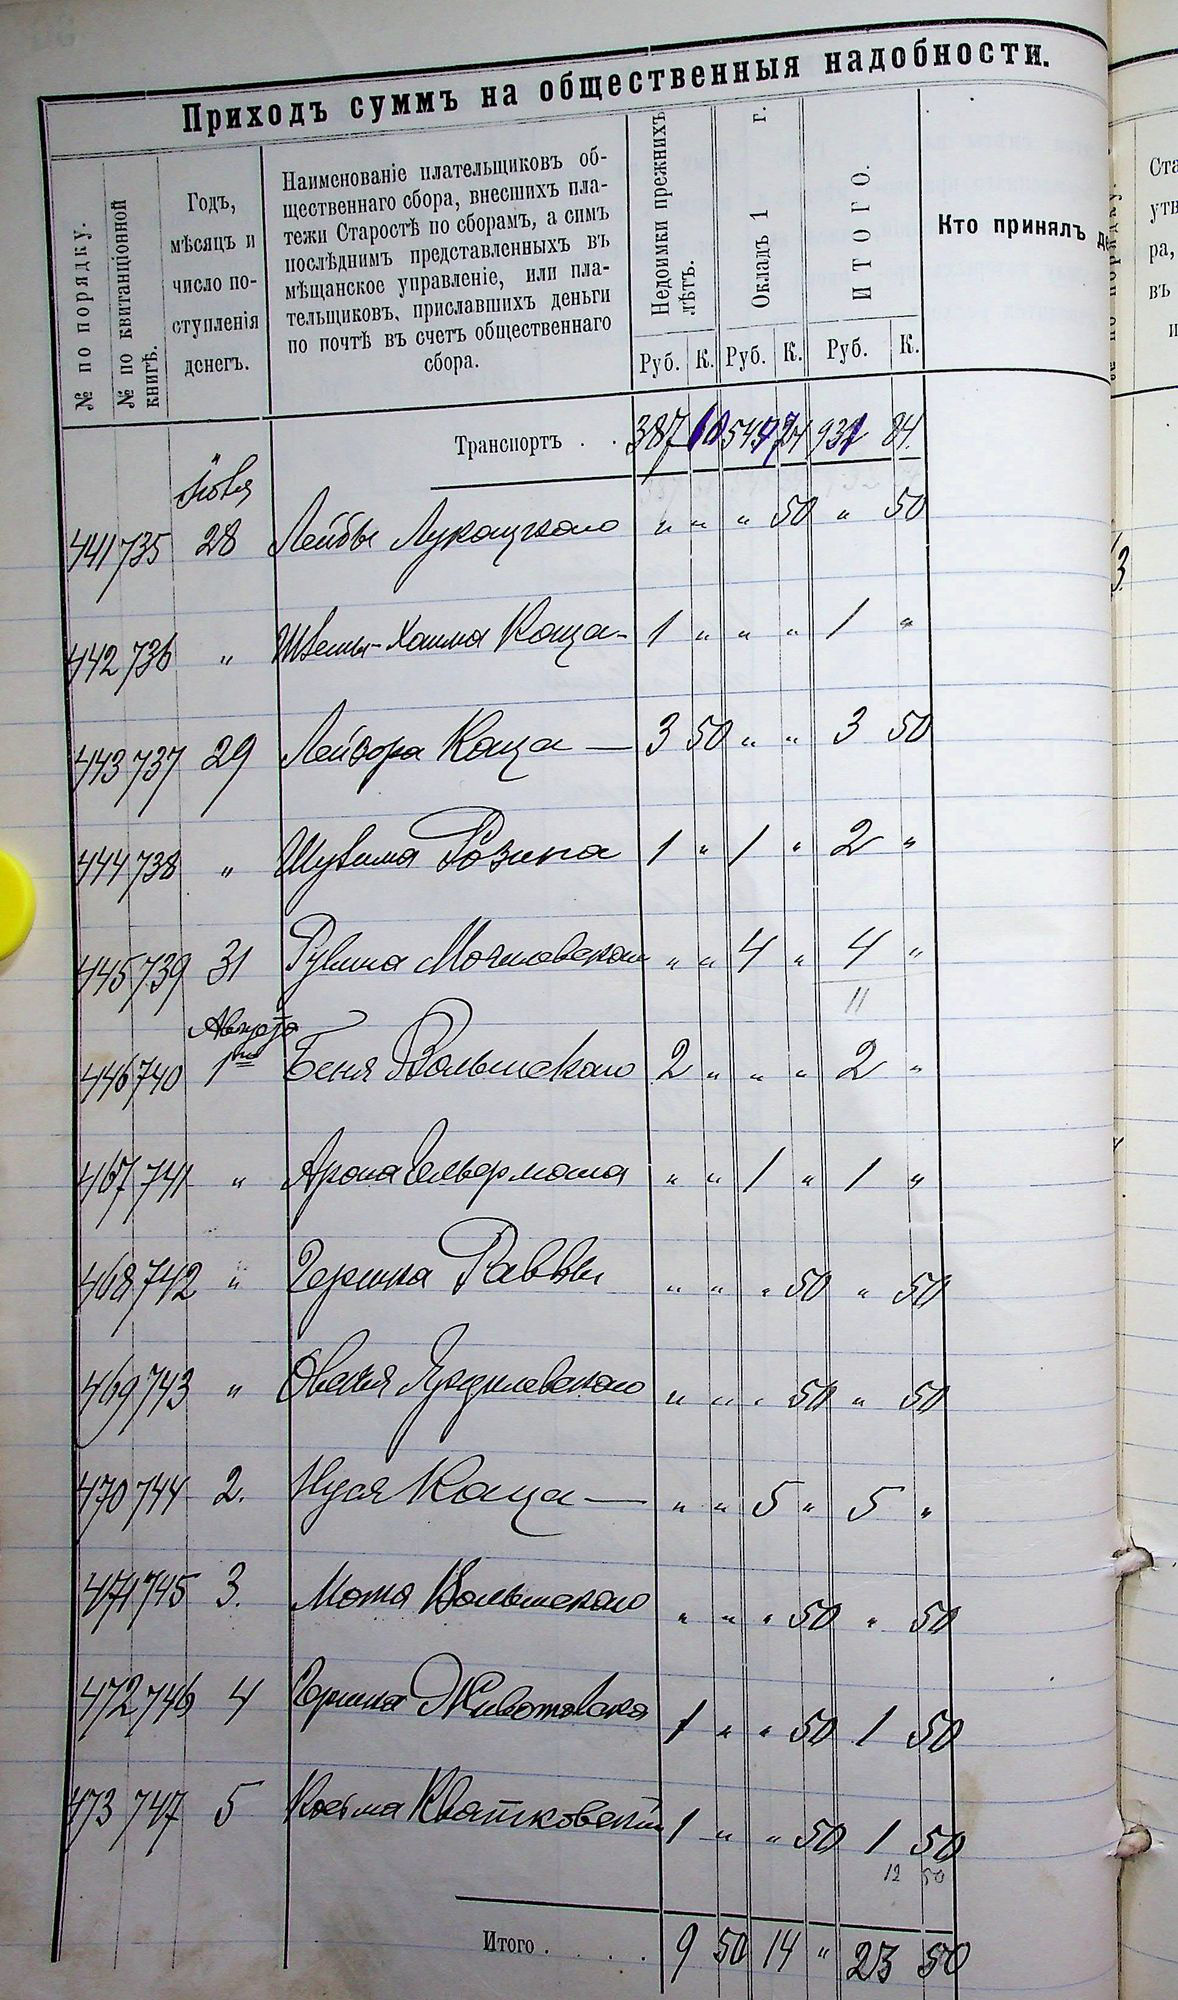 Приходъ суммъ на общественныя надобности.
№ по порядку.
№ по квитанціонной книгѣ.
Годъ,
мѣсяцъ и
число по-
ступленія
денегъ.
Наименованіе плательщиковъ об-
щественнаго сбора, внесшихъ пла-
тежи Старостѣ по сборамъ, а симъ
послѣднимъ представленныхъ въ
мѣщанское управленіе, или пла-
тельщиковъ, приславшихъ деньги
по почтѣ въ счетъ общественнаго
сбора.
Недоимки прежнихъ лѣтъ.
Окладъ 1 г.
ИТОГО.
Кто принялъ
Руб. К. Руб. К. Руб. К.
Транспортъ . . 387 24 931 84.
Іюля
441 735 28 Лейбы Лукацкаго " " " 50 " 50
442 736 " Каца 1 " " " 1 "
443 737 29 Лейзора Каца — 3 50 " " 3 50
444 738 " Розина 1 " 1 " 2 "
445 739 31 Рувина " " 4 " 4 "
11
Августа
446 740 1го Беня Вольшскаго 2 " " " 2 "
467 741 " Арона Гельфмана " " 1 " 1 "
468 742 " Гершка Раввы " " " 50 " 50
469 743 " Овсея " " " 50 " 50
470 744 2. Нуся Каца — " " 5 " 5 "
471 745 3. Мотя Вольшскаго " " " 50 " 50
472 746 4 Гершка Животовска 1 " " 50 1 50
473 747 5 Косьма Квятковскій 1 " " 50 1 50
12 50
Итого . . . . 9 50 14 " 23 50
Ста
утв
ра,
въ